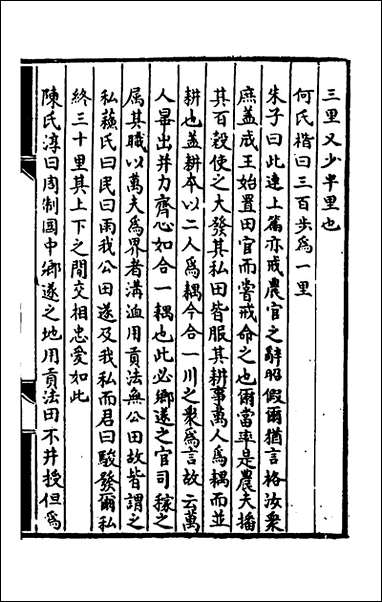 三里又少半里也
何氏楷曰三百步爲一里
朱子曰此連上篇亦戒農官之辭昭假爾猶言格汝衆
庶蓋成王始置田官而嘗戒命之也爾當率是農夫播
其百穀使之大發其私田皆服其耕事萬人爲耦而並
耕也蓋耕本以二人爲耦今合一川之衆爲言故云萬
人畢出并力齊心如合一耦也此必鄉遂之官司稼之
屬其職以萬夫爲界者溝洫用貢法無公田故皆謂之
私蘇氏曰民曰雨我公田遂及我私而君曰駿發爾私
終三十里其上下之間交相忠愛如此
陳氏淳曰周制國中鄉遂之地用貢法田不井授但爲